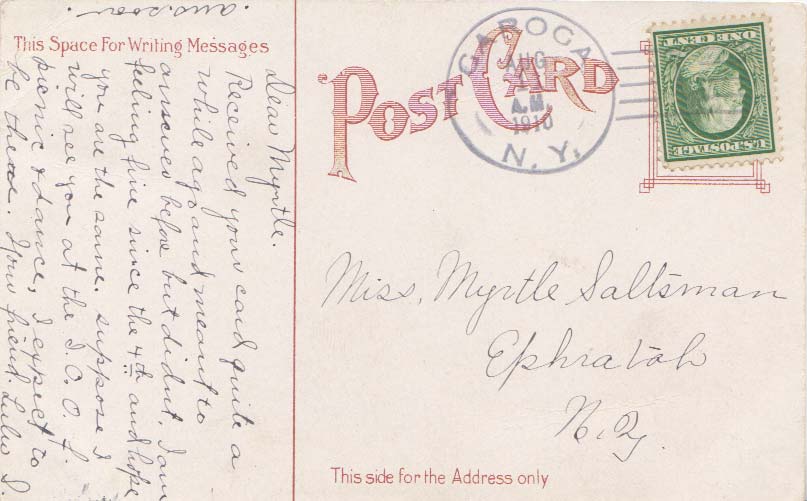 ans. soon.
This Space For Writing Messages
Dear Myrtle.
Received your card quite a
while ago and meant to
answer before but didnt. I am
feeling fine since the 4th and hope
you are the same, suppose I
will see you at the I. O. O. F.
picnic & dance, I expect to
be there. Your friend. Lulu
POST CARD
CAROGA
AUG
A.M.
1910
N. Y.
U.S. POSTAGE
ONE CENT
Miss, Myrtle Saltsman
Ephratah
N. Y.
This side for the Address only